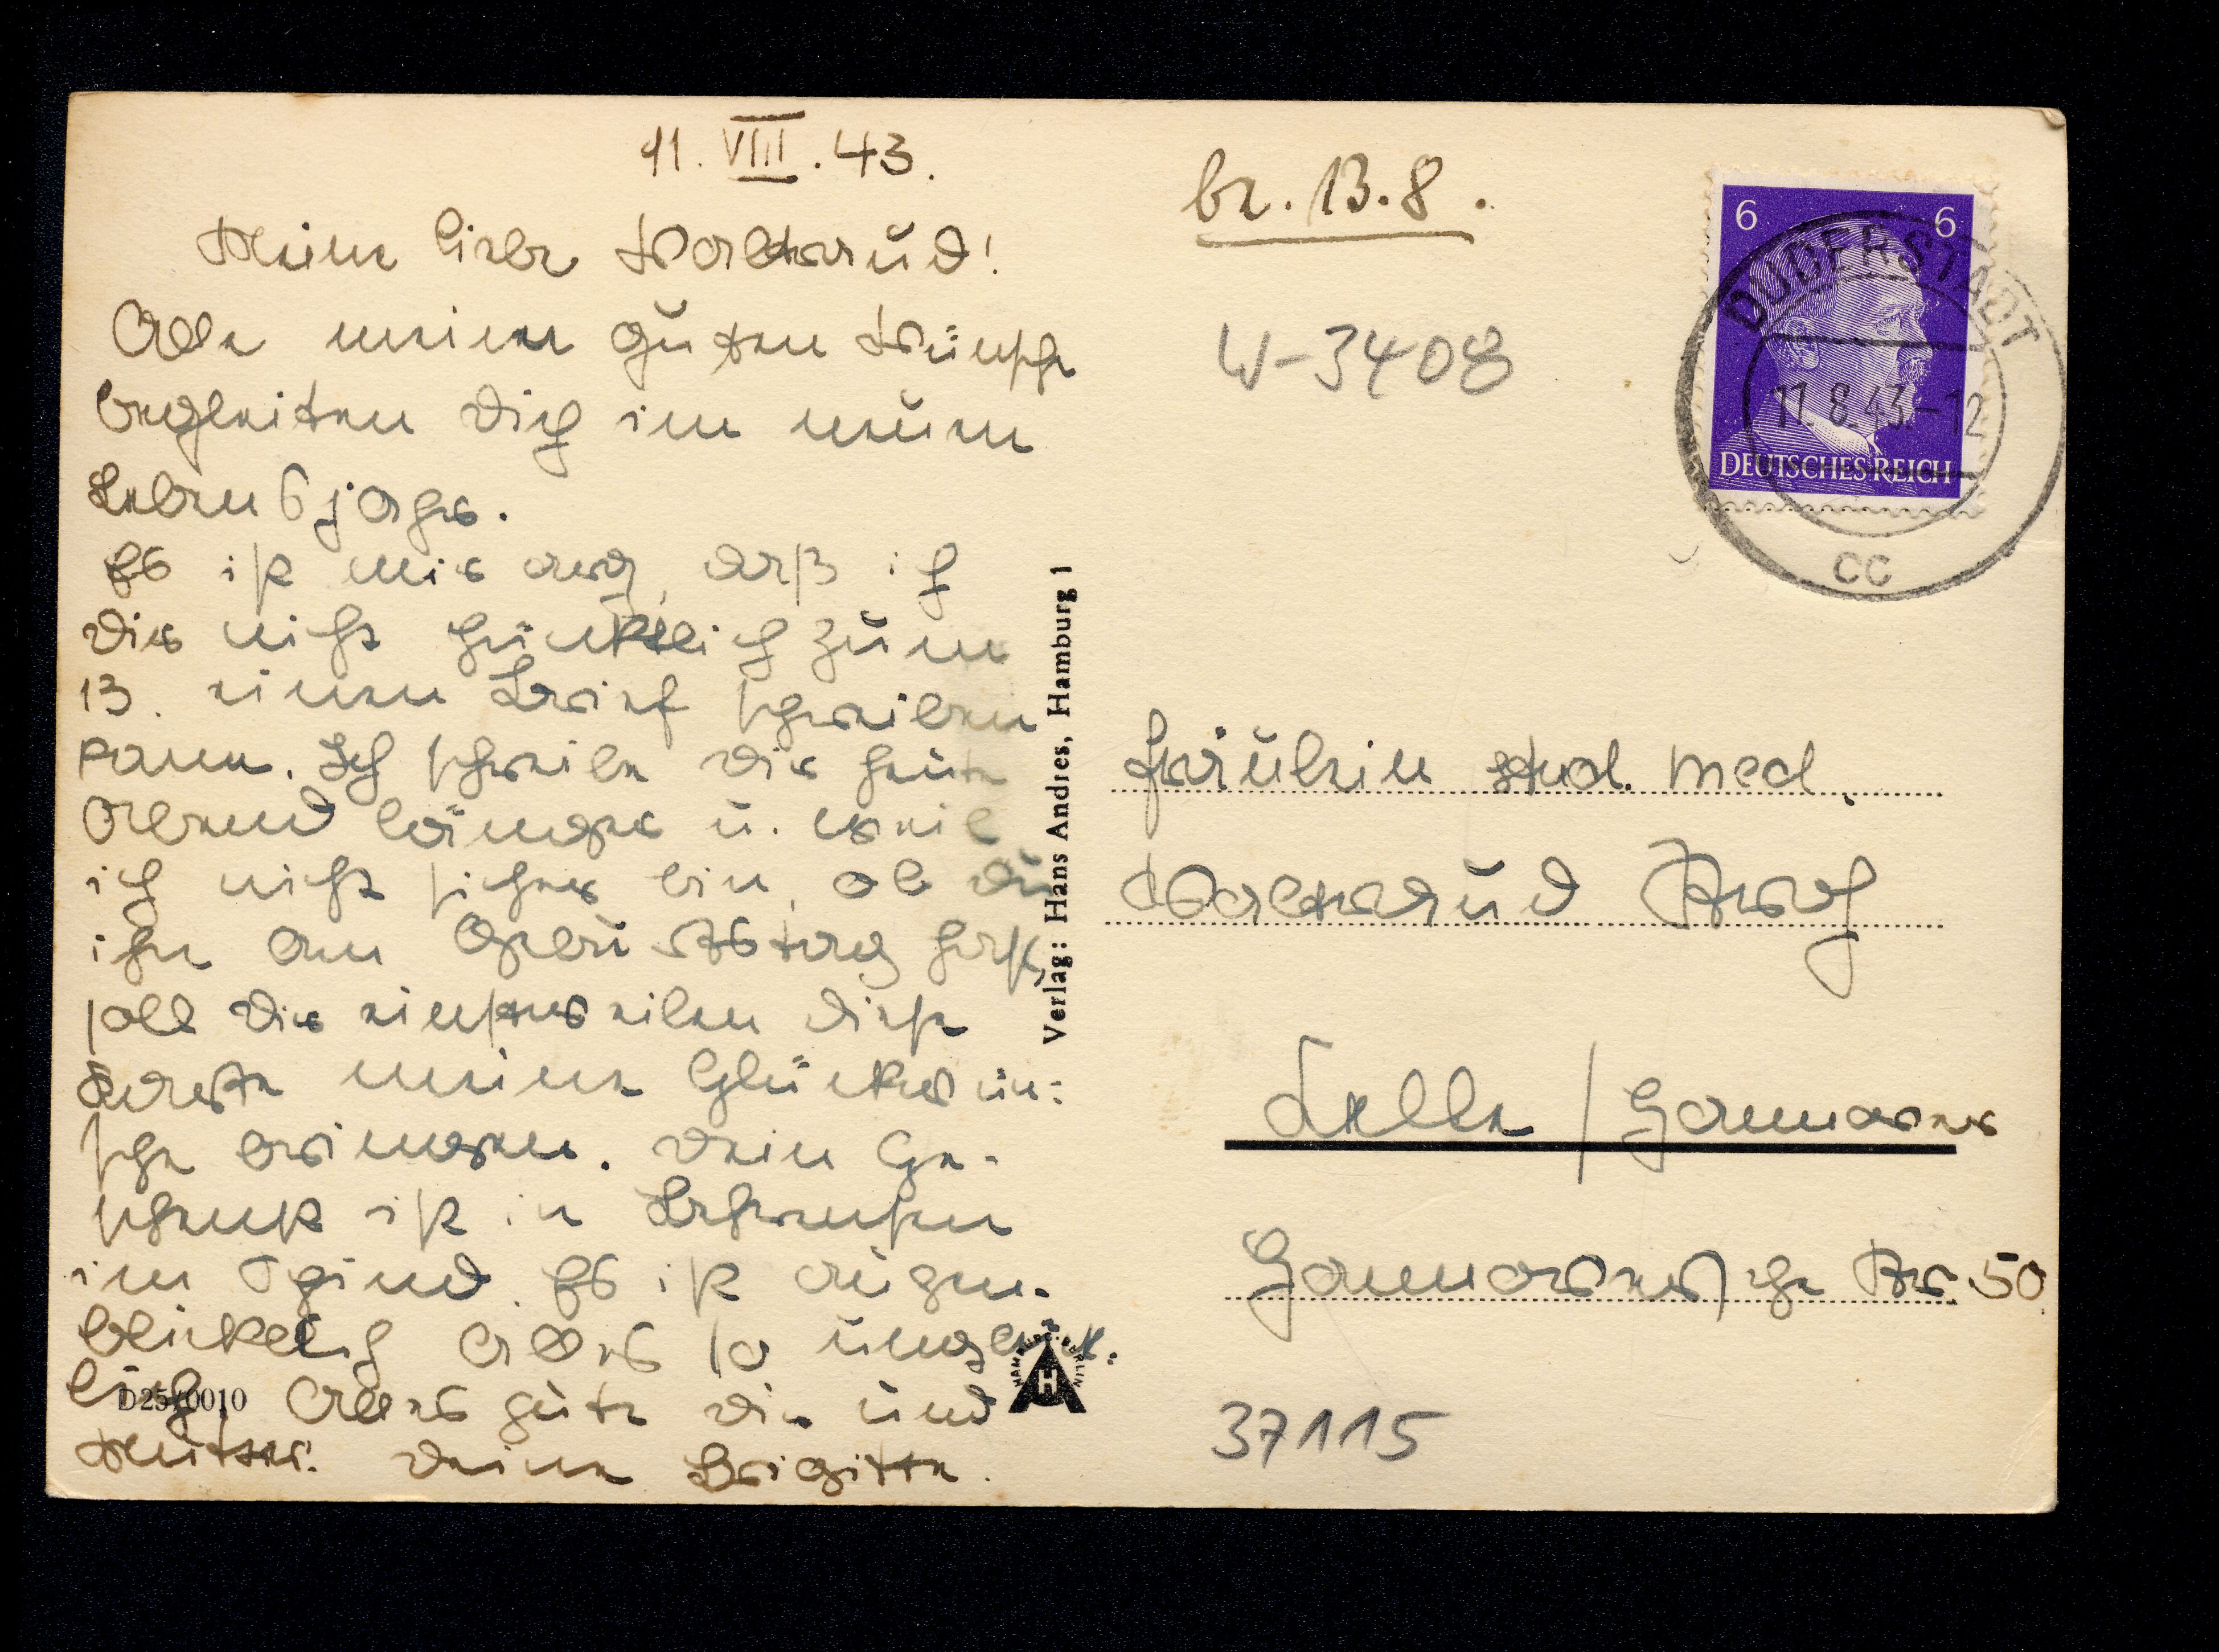 11. VIII. 43.
Meine liebe Waltraud!
Alle meine guten Wünsche
begleiten Dich im neuen
Lebensjahr.
Es ist mir arg, daß ich
Dir nicht pünktlich zum
13. einen Brief schreiben
kann. Ich schreibe Dir heute
Abend länger u. weil
ich nicht sicher bin, ob Du
ihn am Geburtstag hast,
soll Dir einstweilen diese
Karte meine Glückwün:
sche bringen. Dein Ge-
schenk ist in
im Spind. Es ist augen-
blicklich alles so unglück:
lich. Alles Gute Dir und
Mutter. Deine Brigitte.
D25/0010
Verlag: Hans Andres, Hamburg 1
br. 13.8.
W-3408
6 6
DEUTSCHES REICH
DUDERSTADT
11.8.43.-12
cc
Fräulein stud. med.
Waltraud
Celle / Hannover
Hannoversche Str. 50
37115